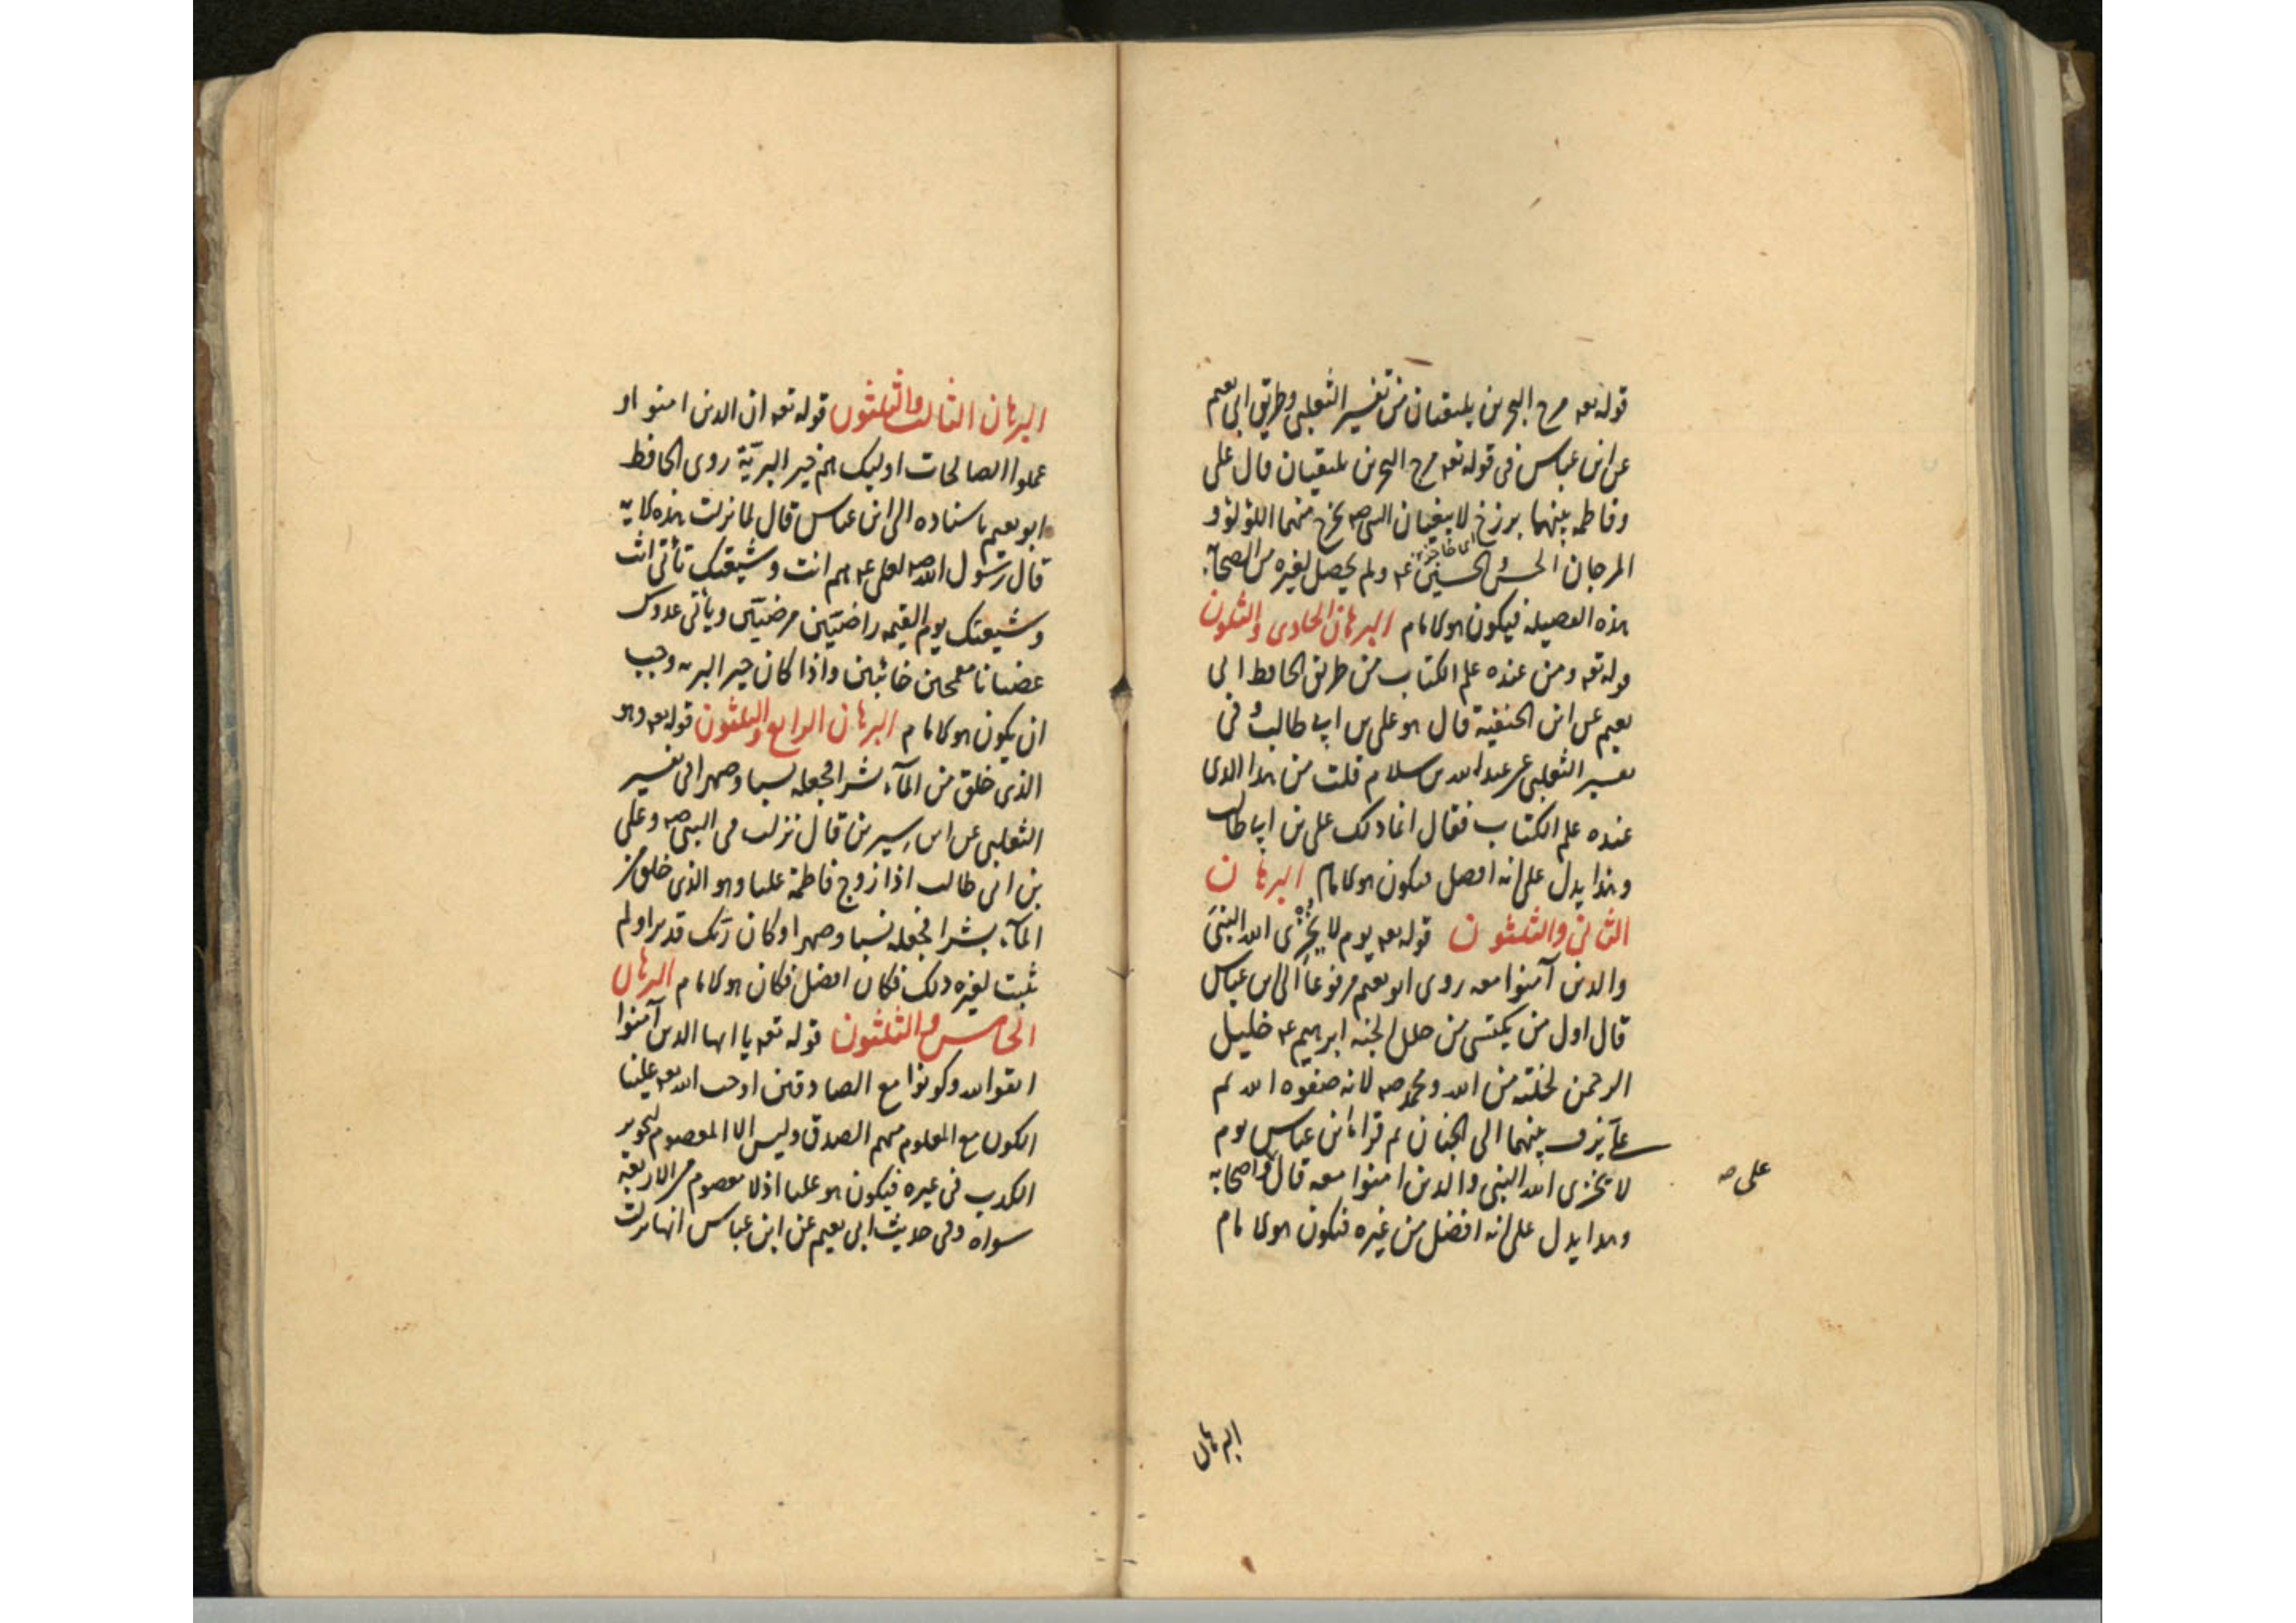 قوله تعه مرج البحرين يلتقيان من تفسير الثعلبى وطريق ابى نعيم
عن ابن عباس فى قوله تعه مرج البحرين يلتقيان قال على
وفاطمه بينهما برزخ لا يبغيان النبى صه يخرج منهما اللؤلؤ و
المرجان الحسن والحسين عه ولم يحصل لغيره من الصحآبه
هذه الفضيله فيكون هو الامام البرهان الحادى والثلثون
قوله تعه ومن عنده علم الكتاب من طريق الحافظ ابى
نعيم عن ابن الحنفية قال هو على بن ابى طالب و فى
تفسير الثعلبى عن عبد الله بن سلام قلت من هذا الذى
عنده علم الكتاب فقال انما ذلك على بن ابى طالب
وهذا يدل على انه افضل فيكون هو الامام البرهان
الثانى والثلثون قوله تعه يوم لا يخزى الله النبى
والذين آمنوا معه روى ابو نعيم مرفوعاً الى ابن عباس
قال اول من يكتسى من حلل الجنه ابرهيم عه خليل
الرحمن لخلته من الله ومحمد صه لانه صفوه الله ثم
على يزف بينهما الى الجنان ثم قرا ابن عباس يوم
على صه
لا يخزى الله النبى والذين امنوا معه قال واصحابه
وهذا يدل على انه افضل من غيره فيكون هو الامام
البرهان
البرهان الثالث والثلثون قوله تعه ان الذين امنوا و
عملوا الصالحات اوليك هم خير البريّة روى الحافظ
ابو نعيم باسناده الى ابن عباس قال لما نزلت هذه الاية
قال رسول الله صه لعلى عه هم انت وشيعتك تأتى انت
وشيعتك يوم القيمه راضيّين مرضيّين ويأتى عدوك
غضبانا مقمحين خائبين واذا كان خير البريه وجب
ان يكون هو الامام البرهان الرابع والثلثون قوله تعه وهو
الذى خلق من المآء بشرا فجعله نسبا وصهرا فى تفسير
الثعلبى عن ابن سيرين قال نزلت فى النبى صه وعلى
بن ابى طالب اذا زوج فاطمة عليا وهو الذى خلق من
المآء بشرا فجعله نسبا وصهرا وكان ربّك قديرا ولم
يثبت لغيره ذلك فكان افضل فكان هو الامام البرهان
الخامس والثلثون قوله تعه يا ايها الذين آمنوا
اتقوا الله وكونوا مع الصادقين اوجب الله تعه علينا
الكون مع المعلوم منهم الصدق وليس الا المعصوم لتجويز
الكذب فى غيره فيكون هو عليا اذ لا معصوم من الاربعة
سواه وفى حديث ابى نعيم عن ابن عباس انها نزلت